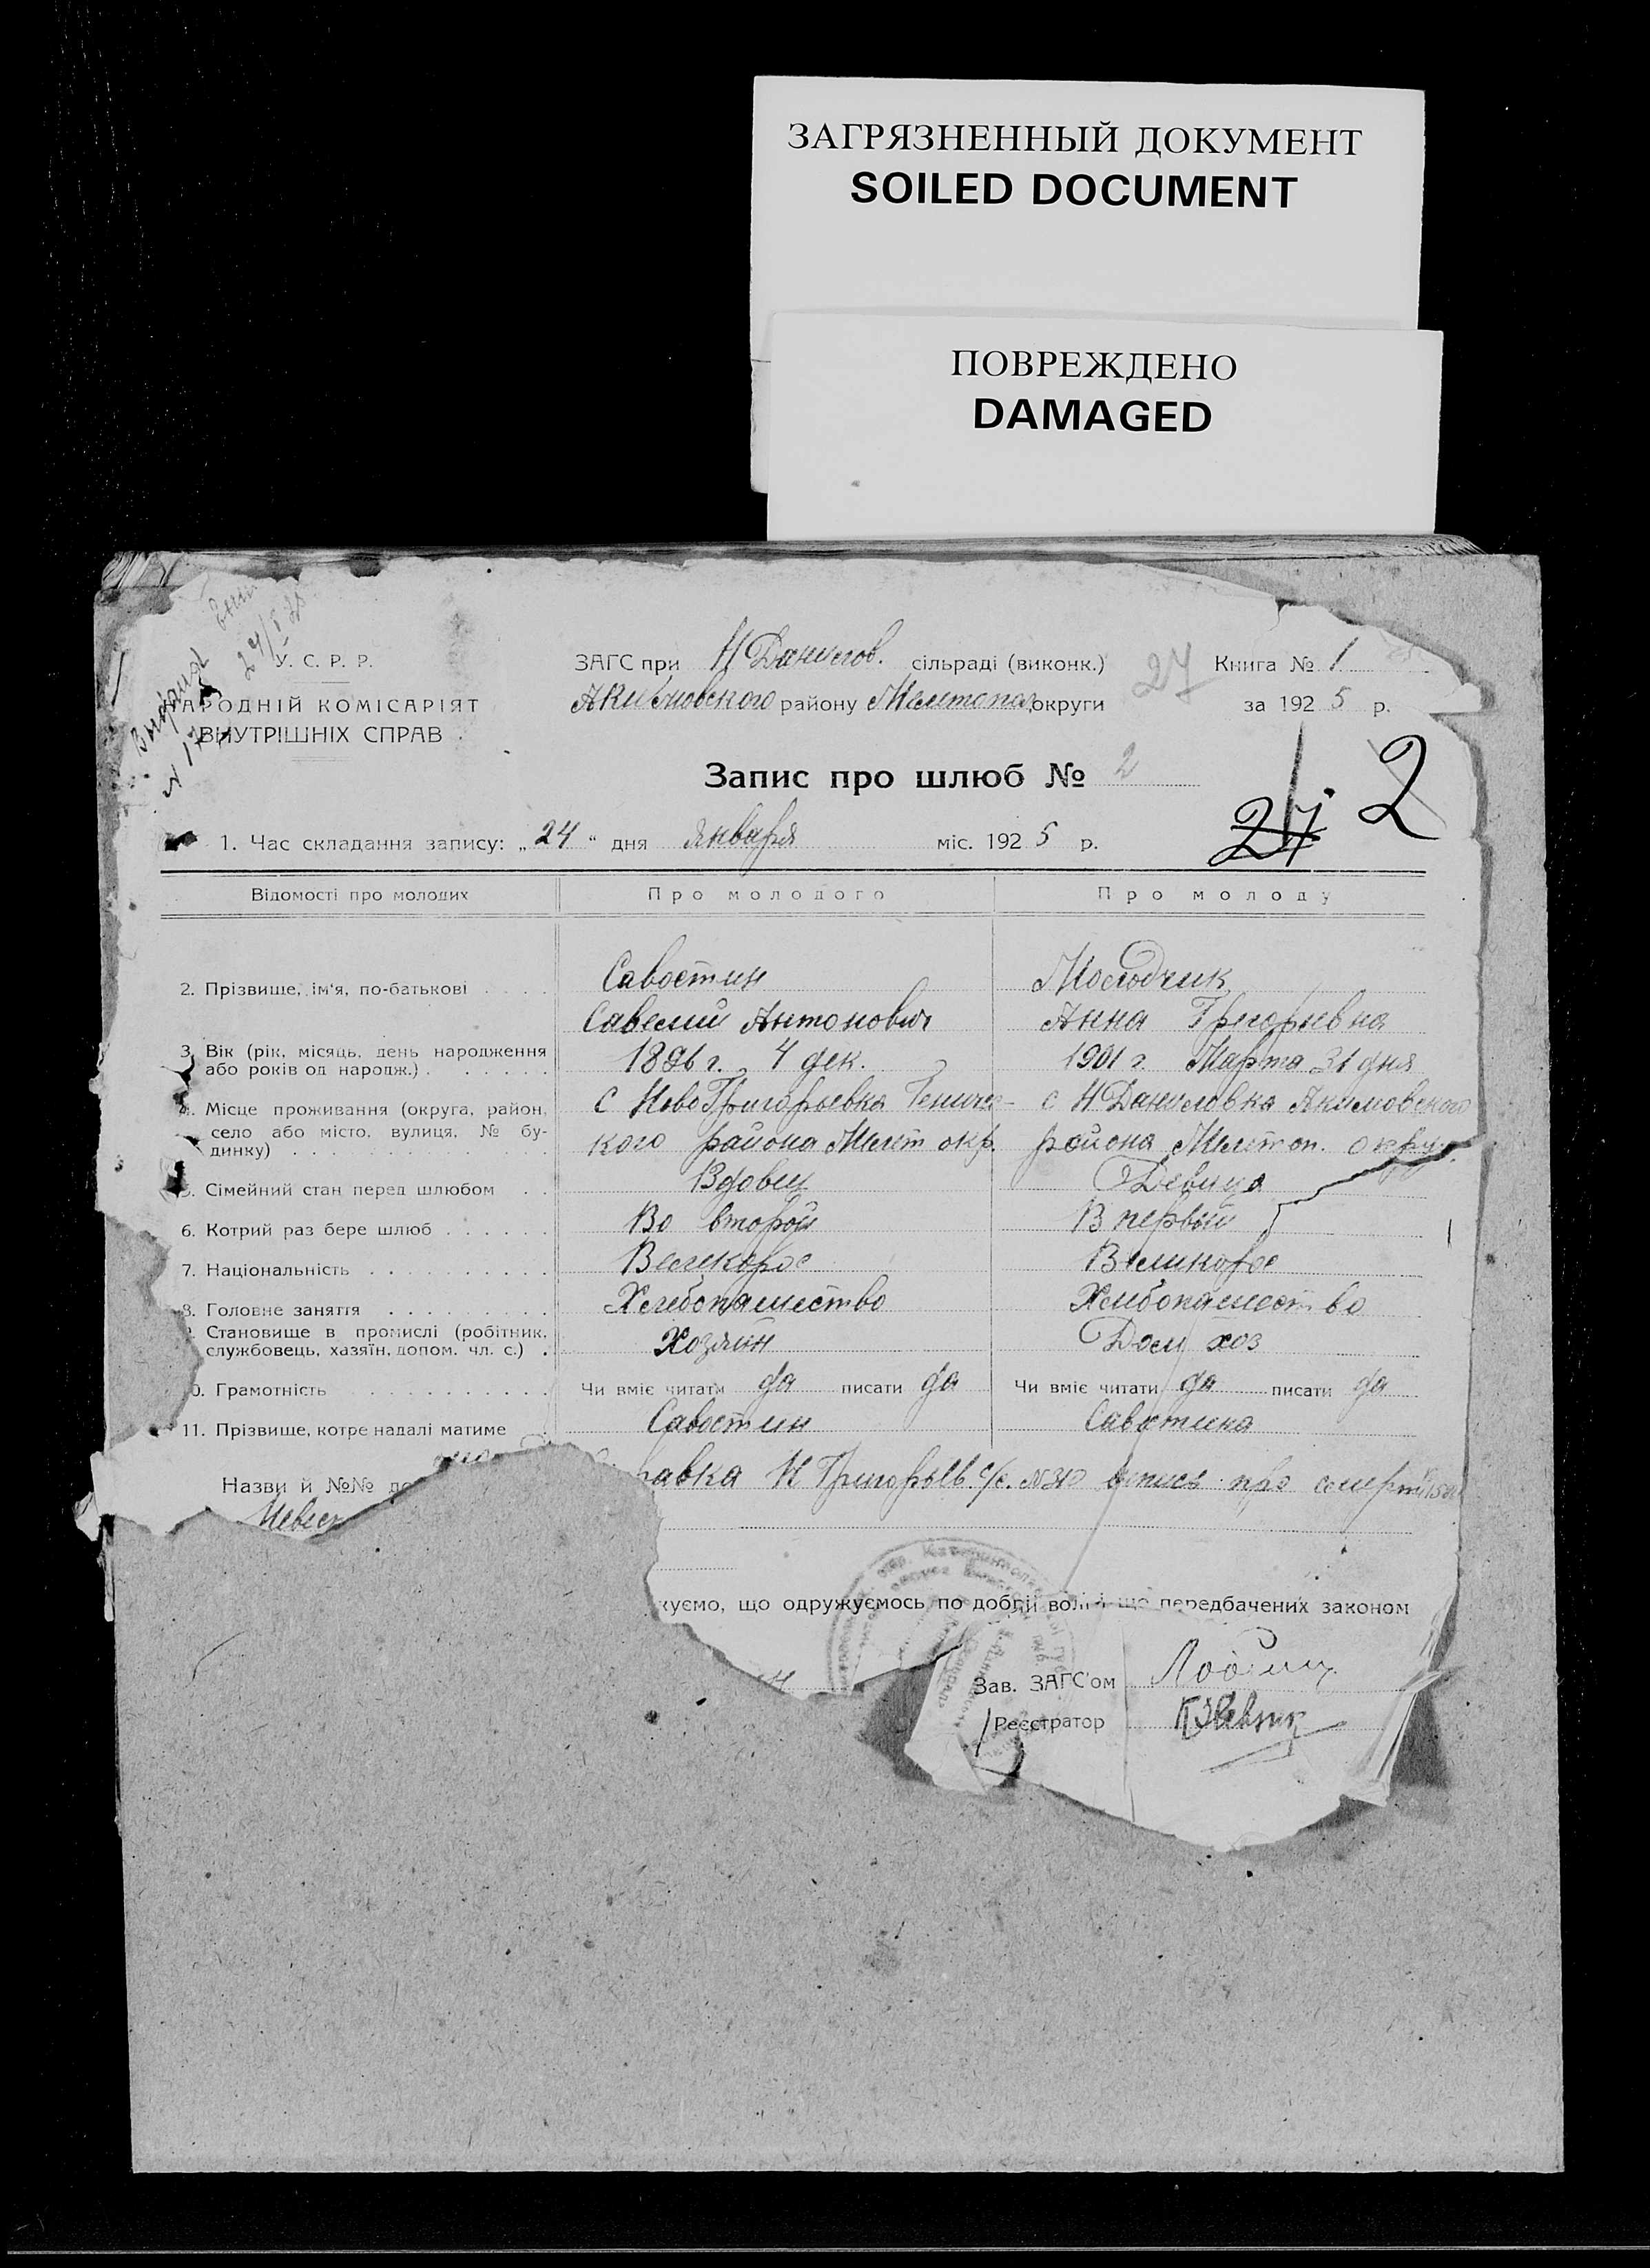 ЗАГРЯЗНЕННЫЙ ДОКУМЕНТ
SOILED DOCUMENT
ПОВРЕЖДЕНО
DAMAGED
У. С. Р. Р.
НАРОДНІЙ КОМІСАРІЯТ
ВНУТРІШНІХ СПРАВ
ЗАГС при Н Данилов. сільраді (виконк.)
Акимовского району Мелитопол округи
27
Книга № 1
за 192 5 р.
Запис про шлюб № 2
27 2
1. Час складання запису: „ 24 “ дня января міс. 192 5 р.
Відомості про молодих Про молодого Про молоду
Савостин Молодчик
2. Прізвище, ім'я, по-батькові
Савелий Антонович Анна Григорьевна
3. Вік (рік, місяць, день народження 1886 г. 4 дек. 1901 г. Марта 31 дня
або років од народж.)
4. Місце проживання (округа, район, с НовоГригорьевка Геничес- с Н Даниловка Акимовского
село або місто, вулиця, № бу-
динку) кого района Мелит окр. района Мелитоп. округ.
5. Сімейний стан перед шлюбом Вдовец Девица
6. Котрий раз бере шлюб Во второй В первый
7. Національність Великорос Великорос
8. Головне заняття Хлебопашество Хлебопашество
9. Становище в промислі (робітник, Хозяин Дом хоз
службовець, хазяїн, допом. чл. с.)
10. Грамотність Чи вміє читати да писати да Чи вміє читати да писати да
11. Прізвище, котре надалі матиме Савостин Савостина
Назви й №№ до
равка Н Григорьев. с/с. №30 запись про смерть
Невест
куємо, що одружуємось по добрій волі і що передбачених законом
Зав. ЗАГС'ом
Реєстратор